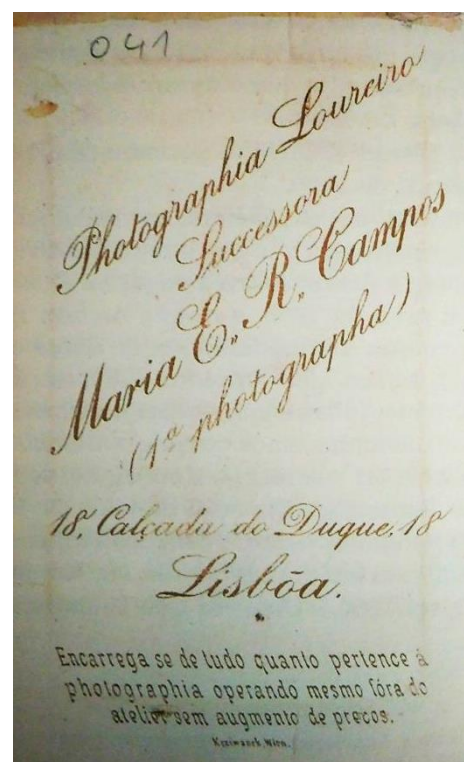 041
Photographia Loureiro
Successora
Maria E. R. Campos
(1ª photographa)
18, Calçada do Duque, 18
Lisbōa.
Encarrega se de tudo quanto pertence á
photographia operando mesmo fóra do
atelier sem augmento de preços.
Wien.